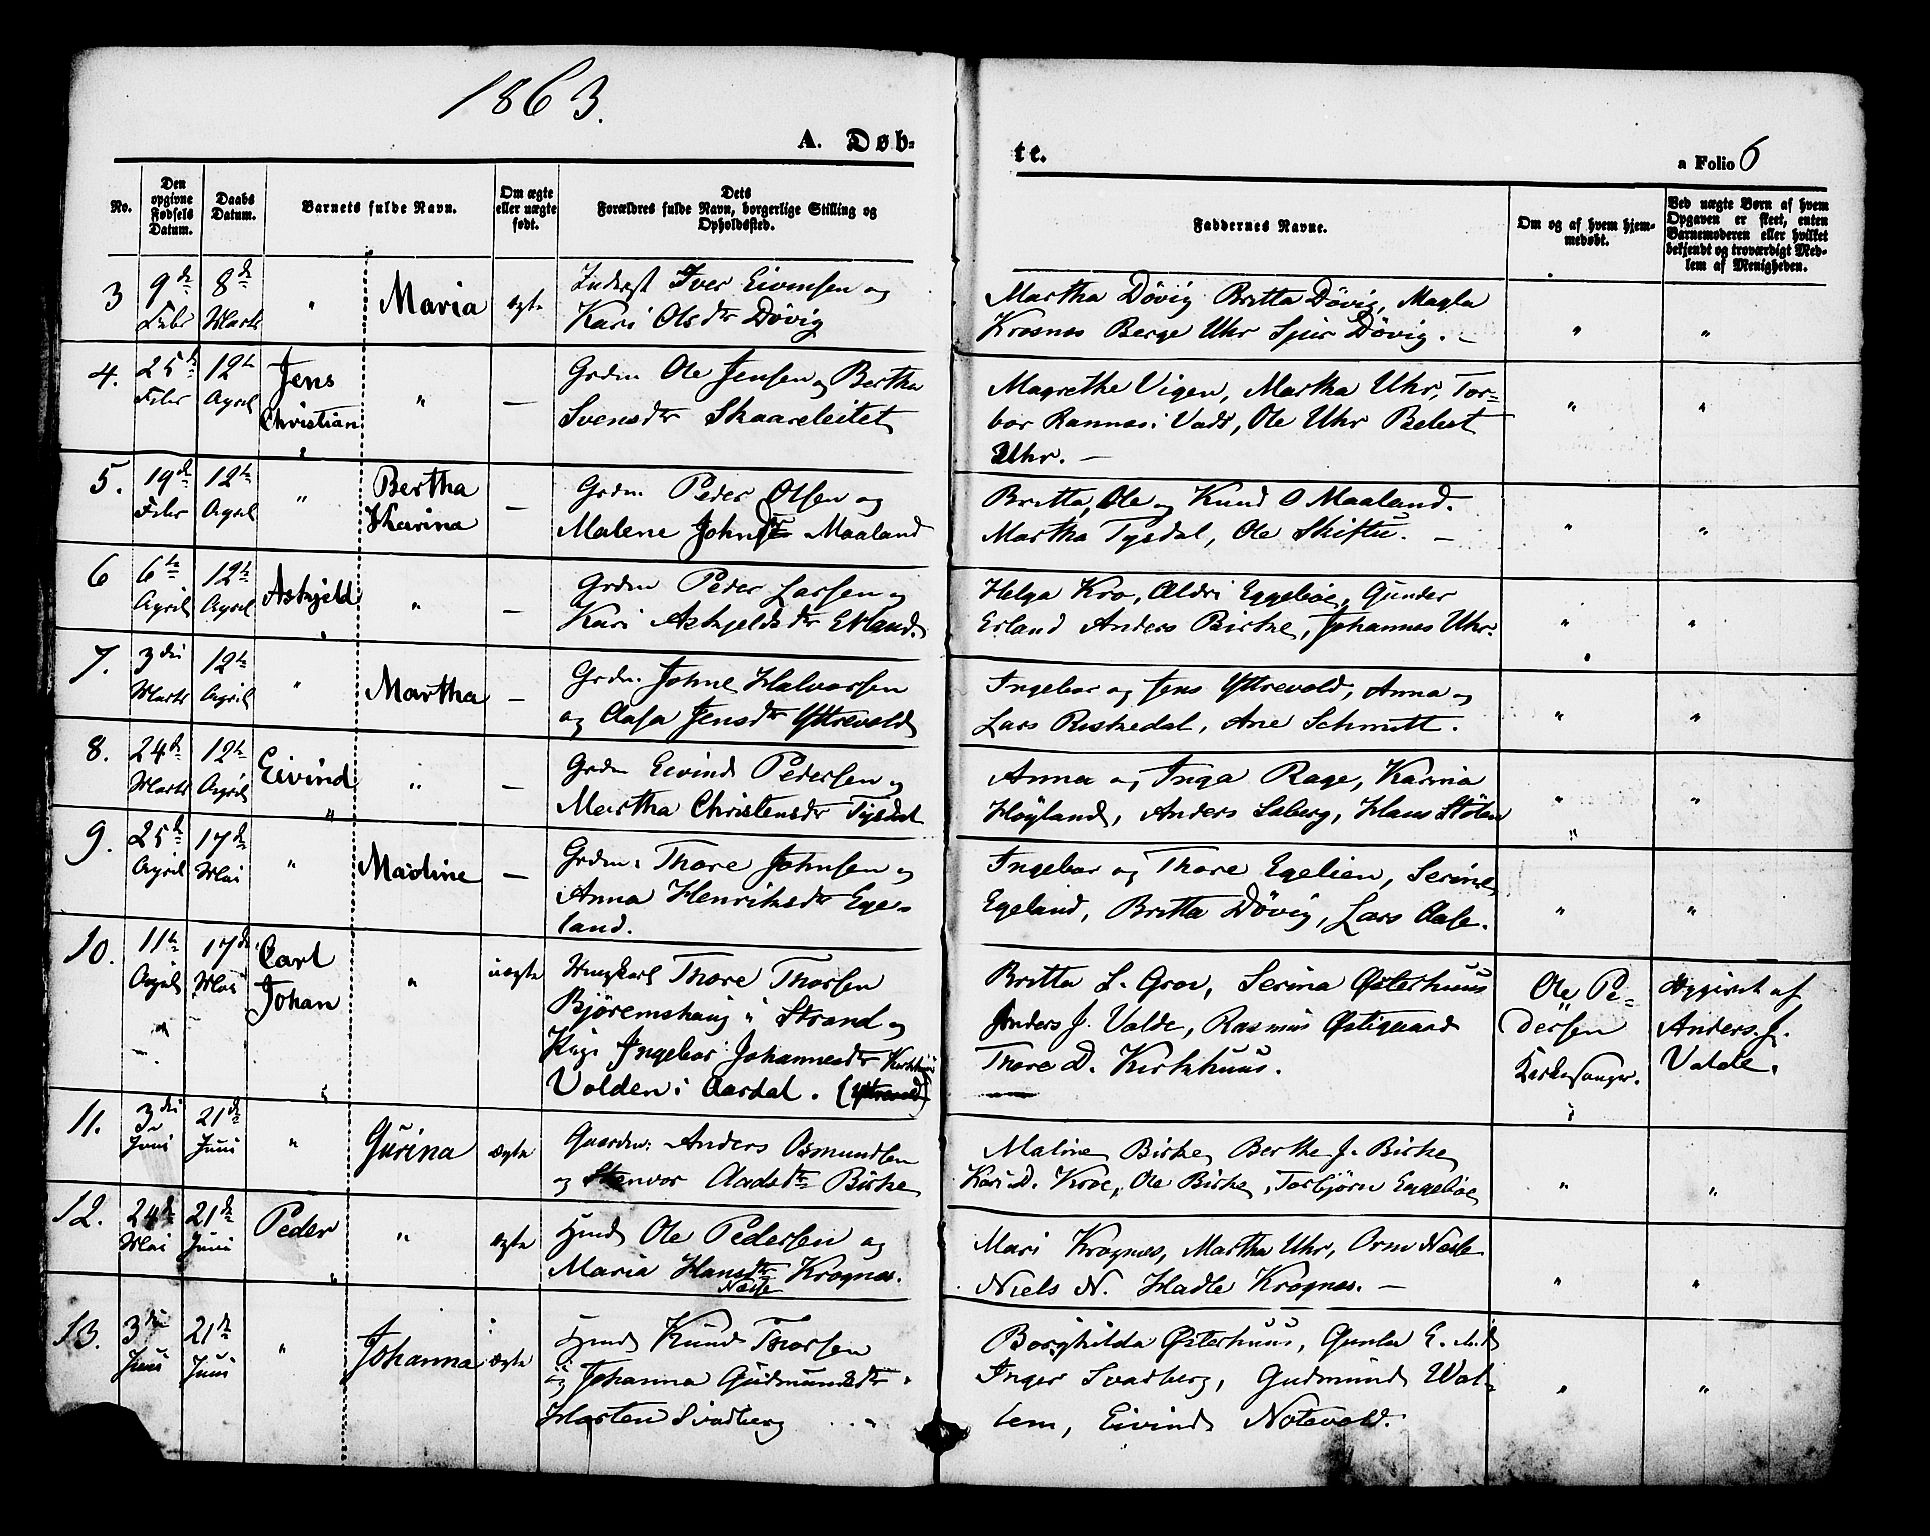 1863.
A. Døb-
te.
a Folio 6
No.
Den opgivne Fødsels Datum.
Daabs Datum.
Barnets fulde Navn.
Om ægte eller uægte født.
Dets
Forældres fulde Navn, borgerlige Stilling og
Opholdssted.
Faddernes Navne.
Om og af hvem hjem-
medøbt.
Ved uægte Børn af hvem
Opgaven er skeet, enten
Barnemoderen eller hvilket
bekjendt og troværdigt Med-
lem af Menigheden.
3 9de Febr 8de Marts " Maria ægte
Inderst Iver Eivensen og
Kari Olsdtr Døvig
Martha Døvig Britta Døvig, Magla
Krosnes Berge Uhr Sjur Døvig. –
" "
4. 25de Febr 12te April Jens Christian " —
Grdm Ole Jensen og Bertha
Svensdtr Skaareleitet
Magrethe Vigen, Martha Uhr, Tor-
bor Rannes i Vads, Ole Uhr
Uhr. –
" "
5. 19de Febr 12te April " Bertha Karina —
Grdm. Peder Olsen og
Malene Johnsdtr Maaland
Britta, Ole og Knud O Maaland.
Martha Tysdal, Ole Skiftu. –
" "
6 6te April 12te April Askjeld " —
Grdm Peder Larsen og
Kari Askjeldsdtr Ekland.
Helga Kro, Eldri Eggebøe, Gunder
Erland Anders Birke, Johannes Uhr.
" "
7. 3die Marts 12te April " Martha —
Grdm. Johne Halvorsen
og Aasa Jensdtr Yttrevold
Ingebor og Jens Yttrevold, Anna og
Lars Riskedal, Ane Schmitt.
" "
8. 24de Marts 12te April Eivind " —
Grdm Eivind Pedersen og
Martha Christensdtr Tysdal
Anna og Inga Rage, Karina
Høyland, Anders Saberg, Hans Stølen
" "
9. 25de April 17de Mai " Madine —
Grdm. Thore Johnsen og
Anna Henriksdtr Ege-
land.
Ingebor og Thore Egelien, Serine
Egeland, Britta Døvig, Lars Aase.
" "
10. 11te April 17de Mai Carl Johan " uægte
Ungkarl Thore Thorsen
Björemshaug i Strand og
Pige Ingebor Johannesdtr
Volden i Aardal. (Yttrevold)
Britta L. Grov, Serina Østerhuus
Anders J. Valde, Rasmus Østigaard
Thore D. Kirkhuus.
Ole Pe-
dersen
Kirkesanger.
Opgivet af
Anders J.
Valde.
11. 3die Juni 21de Juni " Gurina ægte
Gaardm: Anders Osmundsen
og Stenvor Aadsdtr Birke
Maline Birke, Berthe J. Birke,
Kari D. Kroe, Ole Birke, Torbjørn Eggebøe
" "
12. 24de Mai 21de Juni Peder " ægte
Hmd Ole Pedersen og
Maria Hansdtr Krognes.
Nesse
Mari Krognes, Martha Uhr, Orm Nesse
Niels N. Hadle Krognes. –
" "
13. 3die Juni 21de Juni " Johanna ægte
Hmd Knud Thorsen
og Johanna Gudmundsdtr
Hasten Svadberg
Borghilda Østerhuus, Gunla E.
Inger Svadberg, Gudmund Wat-
lem, Eivind Notevold.
" "